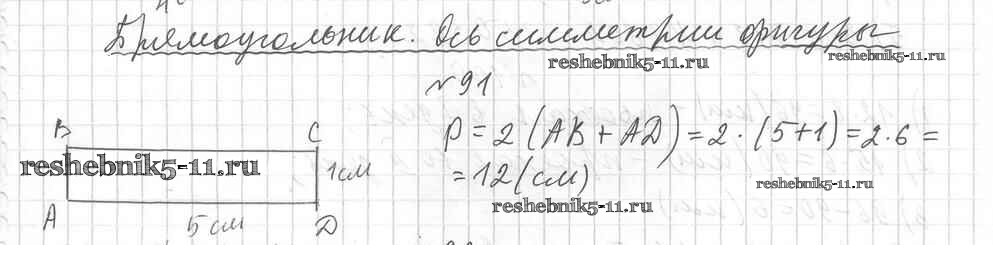 Прямоугольник. Ось симметрии фигуры
reshebnik5-11.ru
reshebnik5-11.ru
№91
B C
P = 2 (AB + AD) = 2 · (5+1) = 2·6 =
reshebnik5-11.ru
1см
= 12 (см)
reshebnik5-11.ru
reshebnik5-11.ru
A
5 см
D